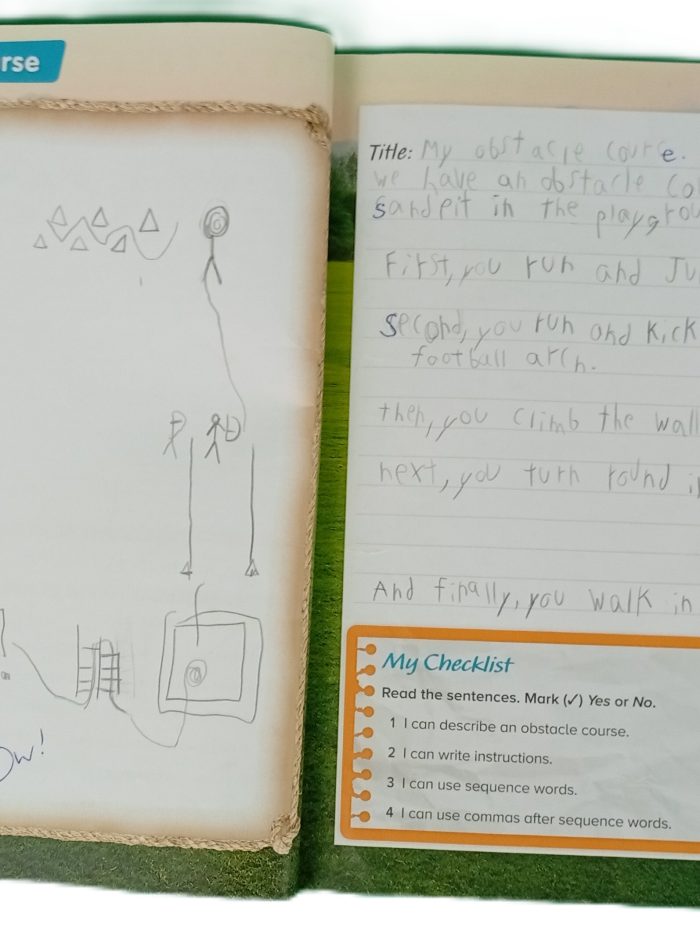 rse
ow!
Title: My obstacle course.
we have an obstacle co
sandpit in the playgrou
First, you run and Ju
second, you run and kick
football arch.
then, you climb the wall
next, you turn round i
And finally, you walk in
My Checklist
Read the sentences. Mark (✓) Yes or No.
1 I can describe an obstacle course.
2 I can write instructions.
3 I can use sequence words.
4 I can use commas after sequence words.